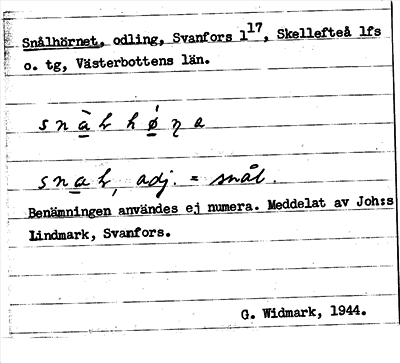 Snålhörnet, odling, Svanfors 1¹⁷, Skellefteå lfs
o. tg, Västerbottens län.
snàḷ hǿṇa
snaḷ, adj. = snål.
Benämningen användes ej numera. Meddelat av Joh:s
Lindmark, Svanfors.
G. Widmark, 1944.